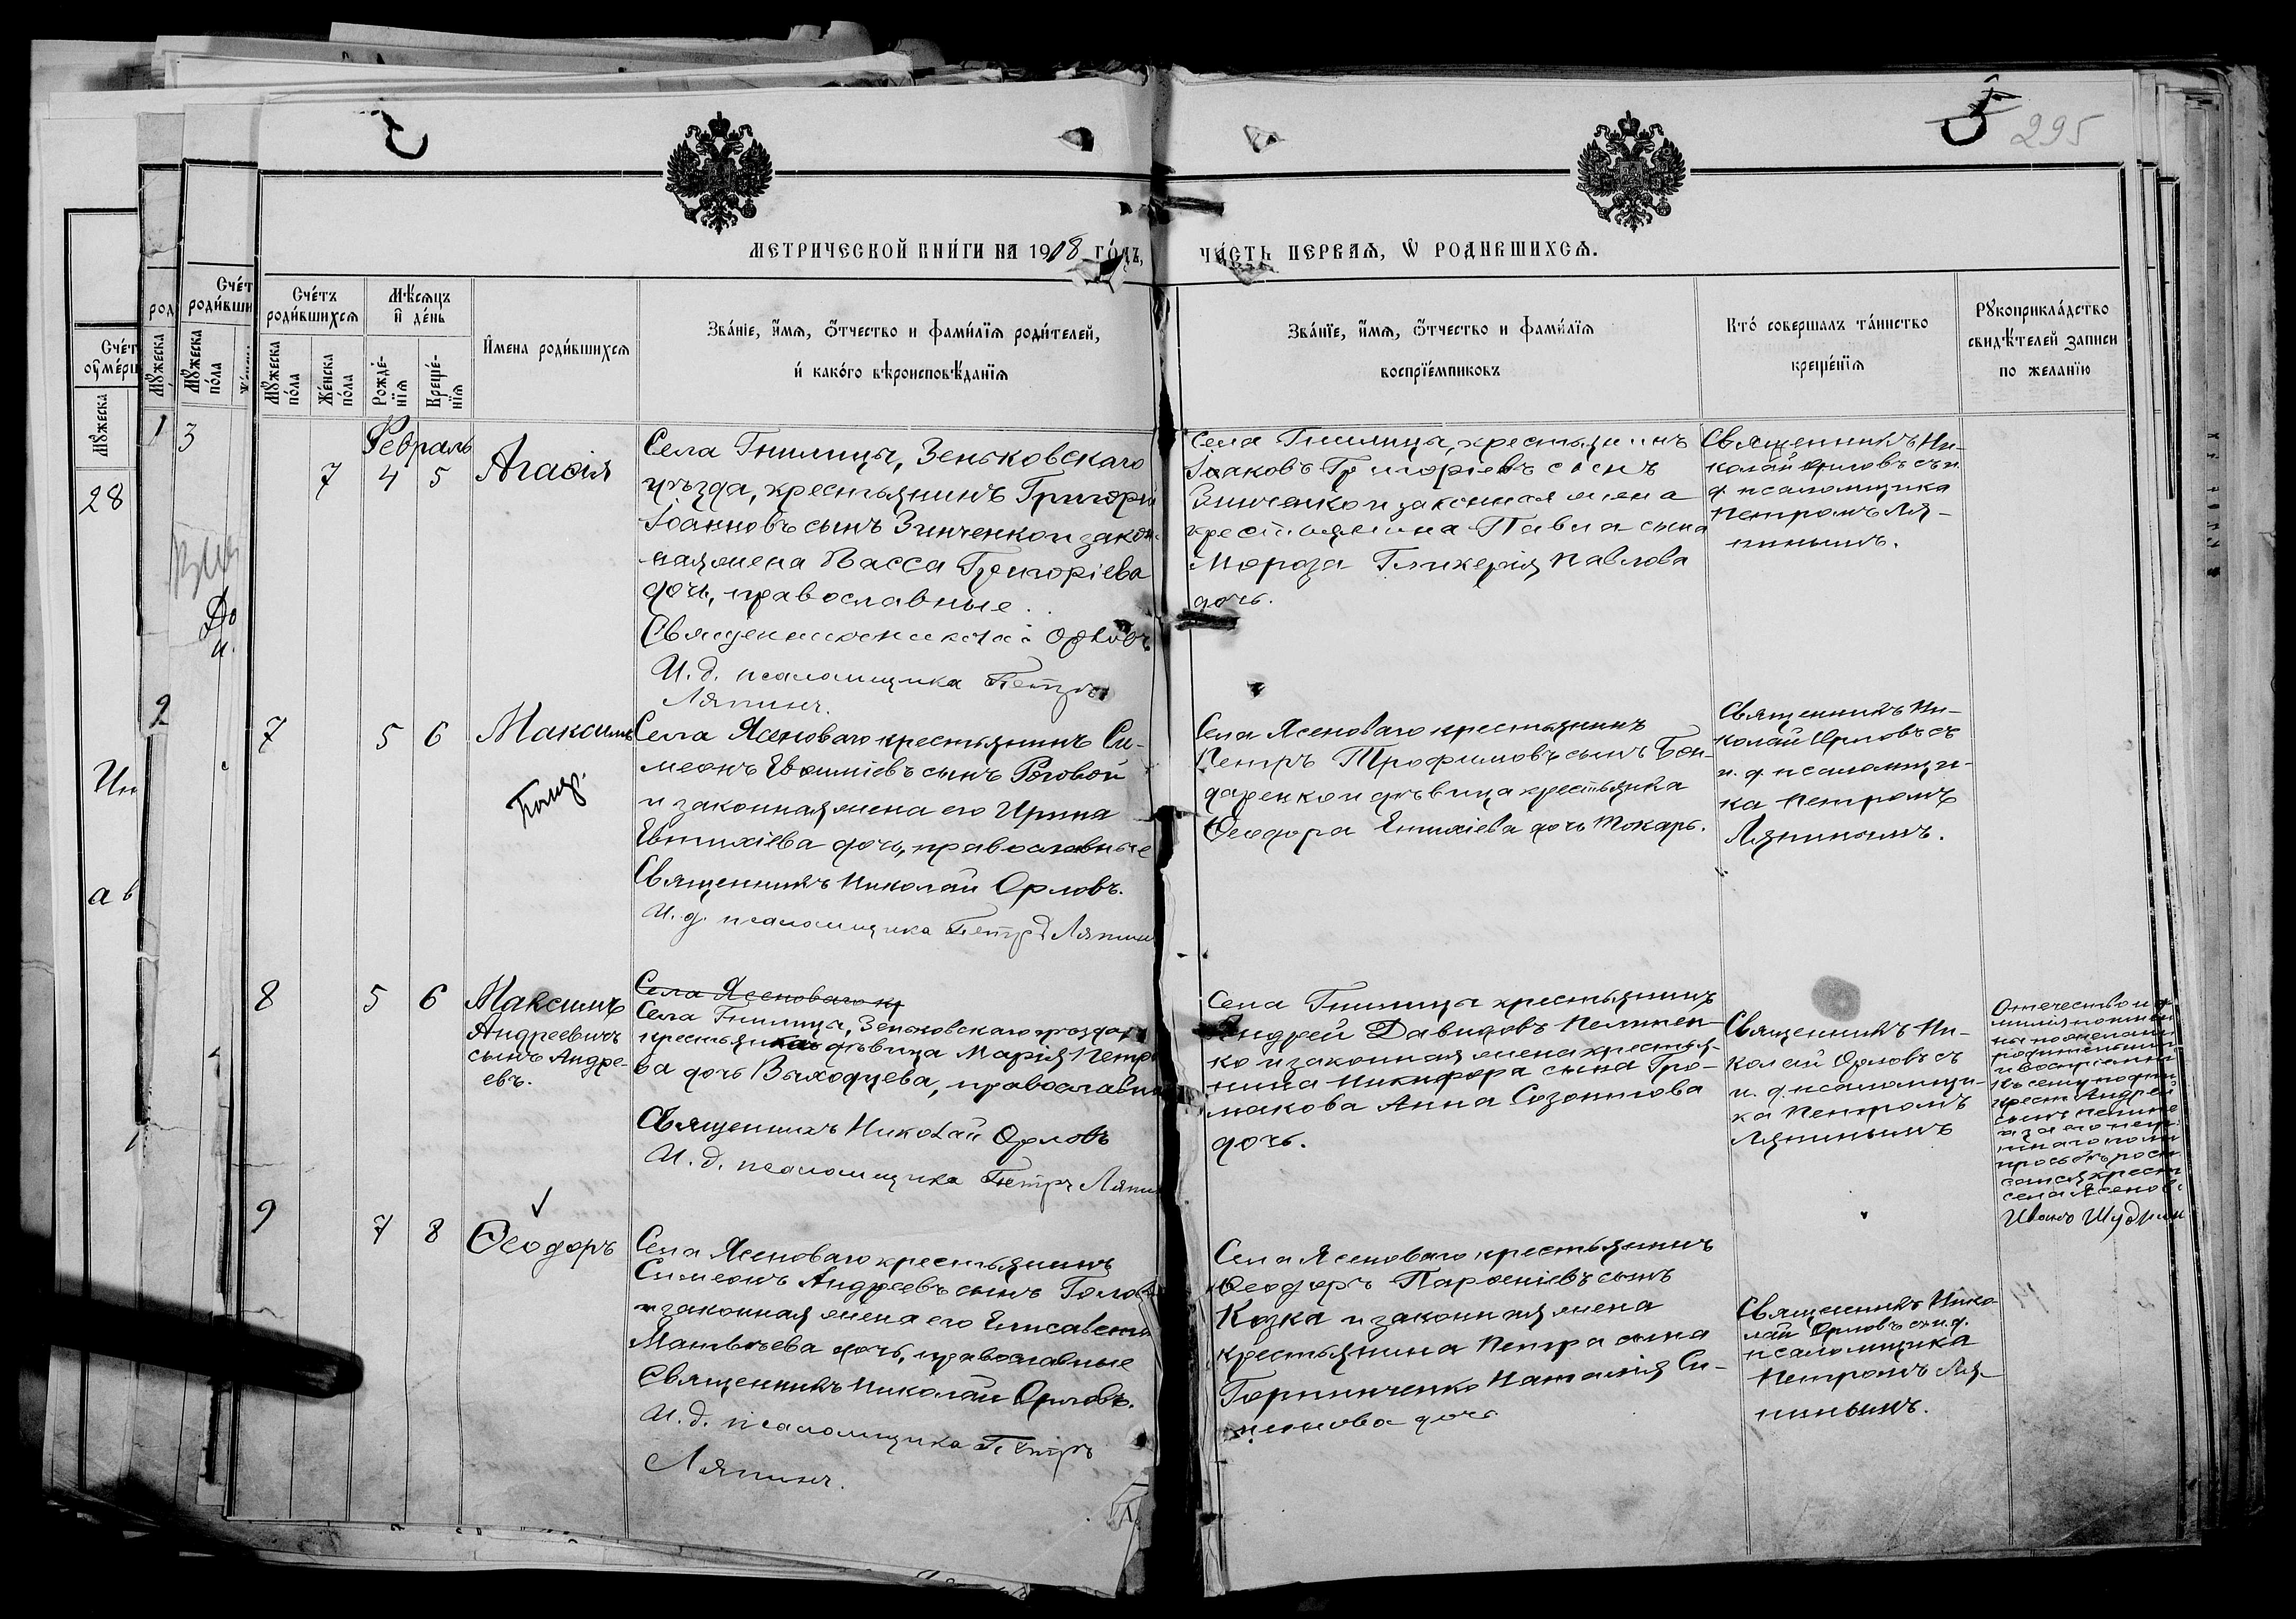 295
МЕТРИЧЕСКОЙ КНИ́ГИ НА 1918 ГО́ДЪ,
ЧА́СТЬ ПЕРВАЯ, Ѡ РОДИВШИХСЯ.
Сче́тъ роди́вшихся
Мѣ́сяцъ и҆ де́нь
И҆мена роди́вшихся
Зва́нїе, и҆́мя, ѻ҆́тчество и фами́лїя роди́телей,
и҆ како́го вѣроисповѣ́данїя
Зва́нїе, и҆́мя, ѻ҆́тчество и фами́лїя
воспрїе́мниковъ
Кто́ совершалъ та́инство
креще́нїя
Рꙋкоприкла́дство
свидѣ́телей записи
по жела́нїю
Мꙋжеска по́ла
Же́нска по́ла
Рожде́-нїя
Креще́-нїя
Февраль
7 4 5 Агаѳія
Села Гнилицы, Зеньковскаго
уѣзда, крестьянинъ Григорій
Іоанновъ сынъ Зинченко и закон-
ная жена Васса Григоріева
дочь, православные.
Священник Николай Орловъ
И. д. псаломщика Петръ
Ляпинъ.
Села Гнилицы, крестьянинъ
Іоаковъ Григоріевъ сынъ
Зинченко и законная жена
крестьянина Павла сына
Мороза Гликерія Павлова
дочь.
Священникъ Ни-
колай Орловъ съ и.
д. псаломщика
Петромъ Ля-
пинымъ.
7 5 6 Максимъ
Села Ясеноваго крестьянинъ Си-
меонъ Евѳиміевъ сынъ Роговой
и законная жена его Ирина
Евтихіева дочь, православные
Священникъ Николай Орловъ.
И. д. псаломщика Петръ Ляпин
Села Ясеноваго крестьянинъ
Петръ Трофимовъ сынъ Бон-
даренко и дѣвица крестьянка
Ѳеодора дочь Токарь.
Священникъ Ни-
колай Орловъ съ
и. д. псаломщи-
ка Петромъ
Ляпинымъ.
8 5 6 Максимъ
Андреевичъ
сынъ Андре-
евъ.
Села Ясеноваго кр
Села Гнилицы, Зеньковскаго уѣзда
крестьянка дѣвица Марія Петро
ва дочь Выходцева, православн
Священникъ Николай Орловъ
И. д. псаломщика Петръ Ляпин
Села Гнилицы крестьянинъ
Андрей Давидовъ Пелипен-
ко и законная жена крестья-
нина Никифора сына Гро-
макова Анна Созонтова
дочь.
Священникъ Ни-
колай Орловъ съ
и. д. псаломщи-
ка Петромъ
Ляпинымъ
Отечество и фа
села Ясенов.
9 7 8 Ѳеодоръ
Села Ясеноваго крестьянинъ
Симеонъ Андреевъ сынъ Голов
и законная жена его Елисавета
Матвѣева дочь, православные
Священникъ Николай Орловъ.
И. д. псаломщика Петръ
Ляпинъ.
Села Ясеноваго крестьянинъ
Ѳеодоръ Парѳеніевъ сынъ
Козка и законная жена
крестьянина Петра сына
Горпинченко Наталія Си-
меонова дочь
Священникъ Нико-
лай Орловъ съ и. д.
псаломщика
Петромъ Ля-
пинымъ.
28
3